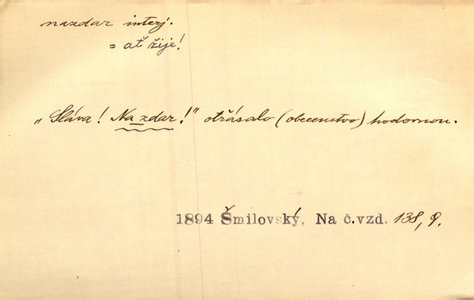 nazdar interj.
= ať žije!
„Sláva! Na zdar!" otřásalo (obecenstvo) hodovnou.
1894 Šmilovský, Na č.vzd. 138, 9.